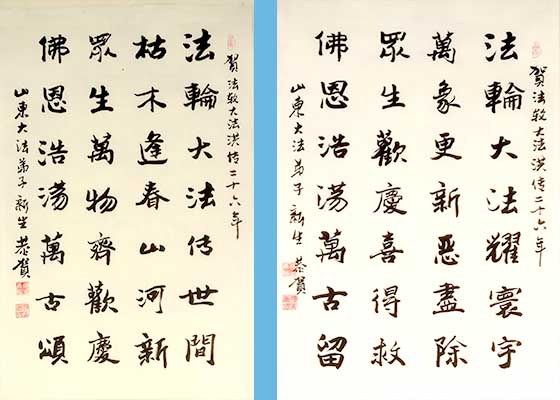 賀法輪大法洪传二十六年
法輪大法传世間
枯木逢春山河新
眾生萬物齊歡慶
佛恩浩蕩萬古頌
山東大法弟子新生 恭賀
賀法輪大法洪传二十六年
法輪大法耀寰宇
萬象更新恶盡除
眾生歡慶喜得救
佛恩浩蕩萬古留
山東大法弟子新生 恭賀